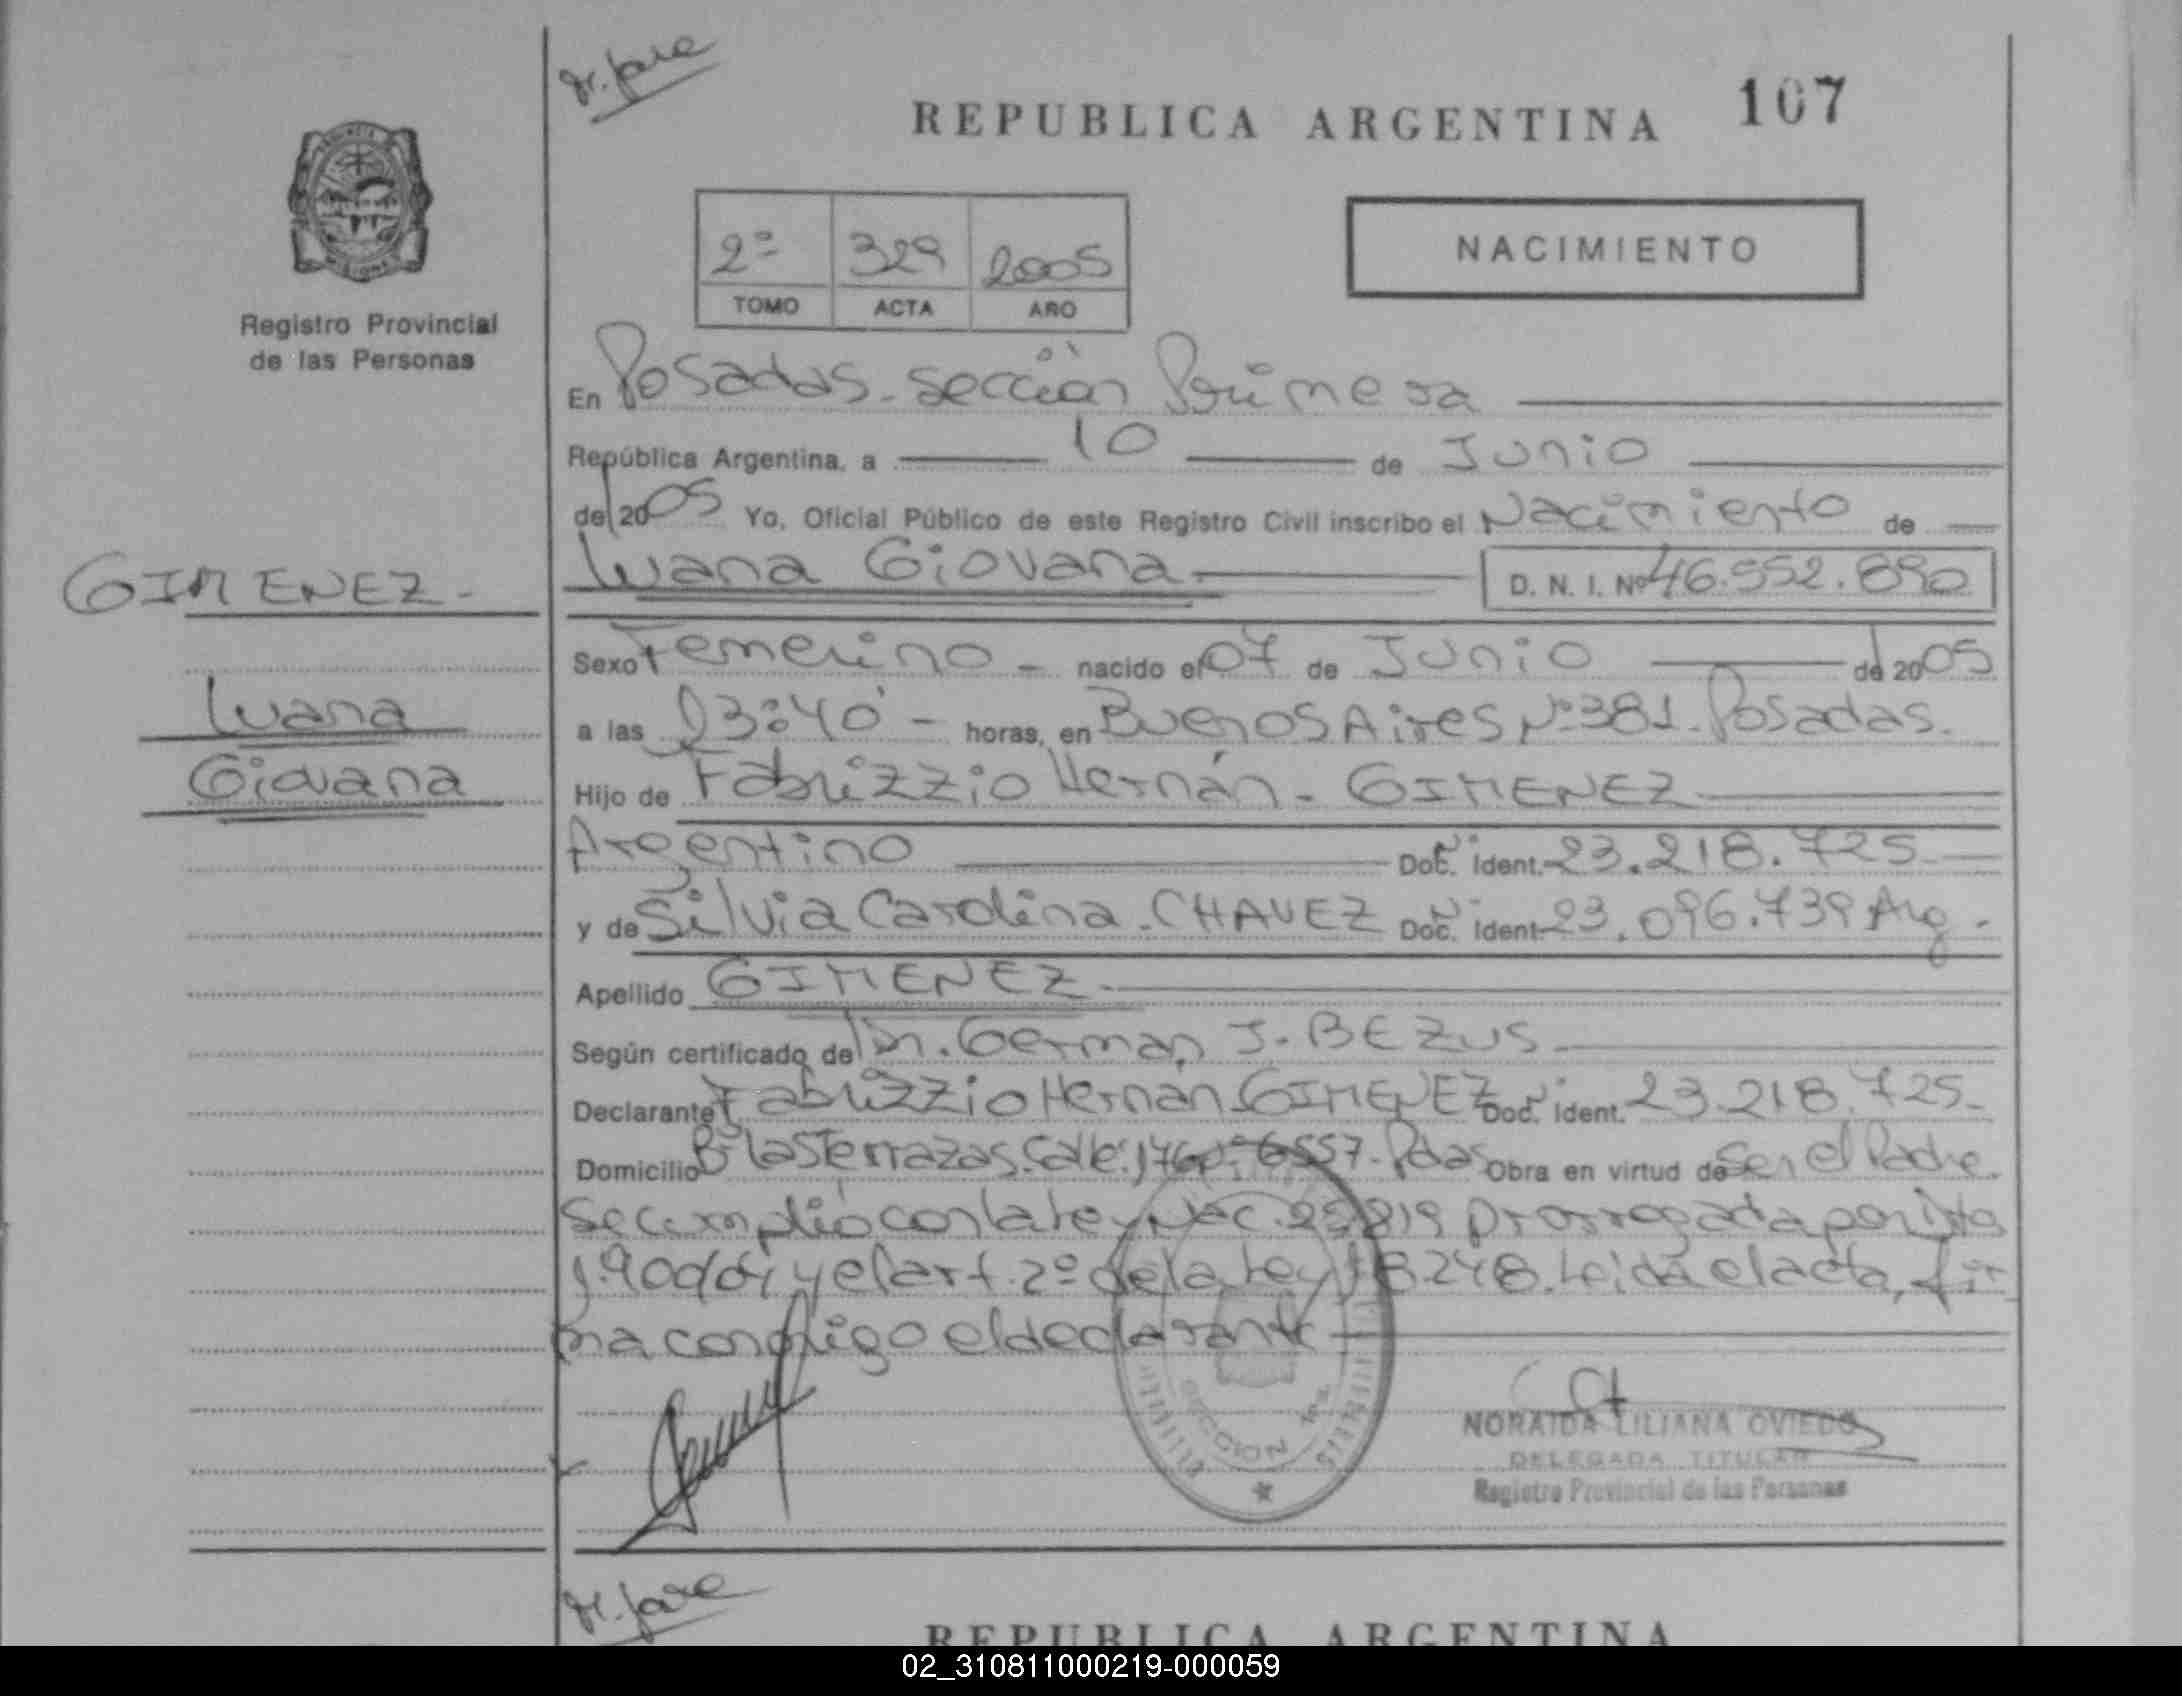 REPUBLICA ARGENTINA 107
2º 329 2005
TOMO ACTA AÑO
NACIMIENTO
Registro Provincial
de las Personas
En Posadas. sección Primera
República Argentina, a 10 de Junio
de 2005 Yo, Oficial Público de este Registro Civil inscribo el Nacimiento de
Luana Giovana D. N. I. Nº 46.552.890
GIMENEZ.
Sexo Femenino - nacido el 07 de Junio de 2005
Luana
a las 13:40' - horas, en Buenos Aires Nº 381. Posadas.
Giovana
Hijo de Fabrizzio Hernán - GIMENEZ
Argentino Doc. Ident. 23.218.725
y de Silvia Carolina. CHAVEZ Doc. Ident. 23.096.739 Arg.
Apellido GIMENEZ.
Según certificado de Dr. German J. BEZUS
Declarante Fabrizzio Hernán GIMENEZ Doc. Ident. 23.218.725
Domicilio Bº Las Terrazas. Calle: Nº 6557. Pdas Obra en virtud de Ser el Padre.
Se cumplió con la Ley Nac. prorrogada por Dto
y el art. 2º de la Ley 18.248. Leída el acta, fir
ma conmigo el declarante
SECCION 1ra.
NORAIDA LILIANA OVIEDO
DELEGADA TITULAR
Registro Provincial de las Personas
REPUBLICA ARGENTINA
02_310811000219-000059